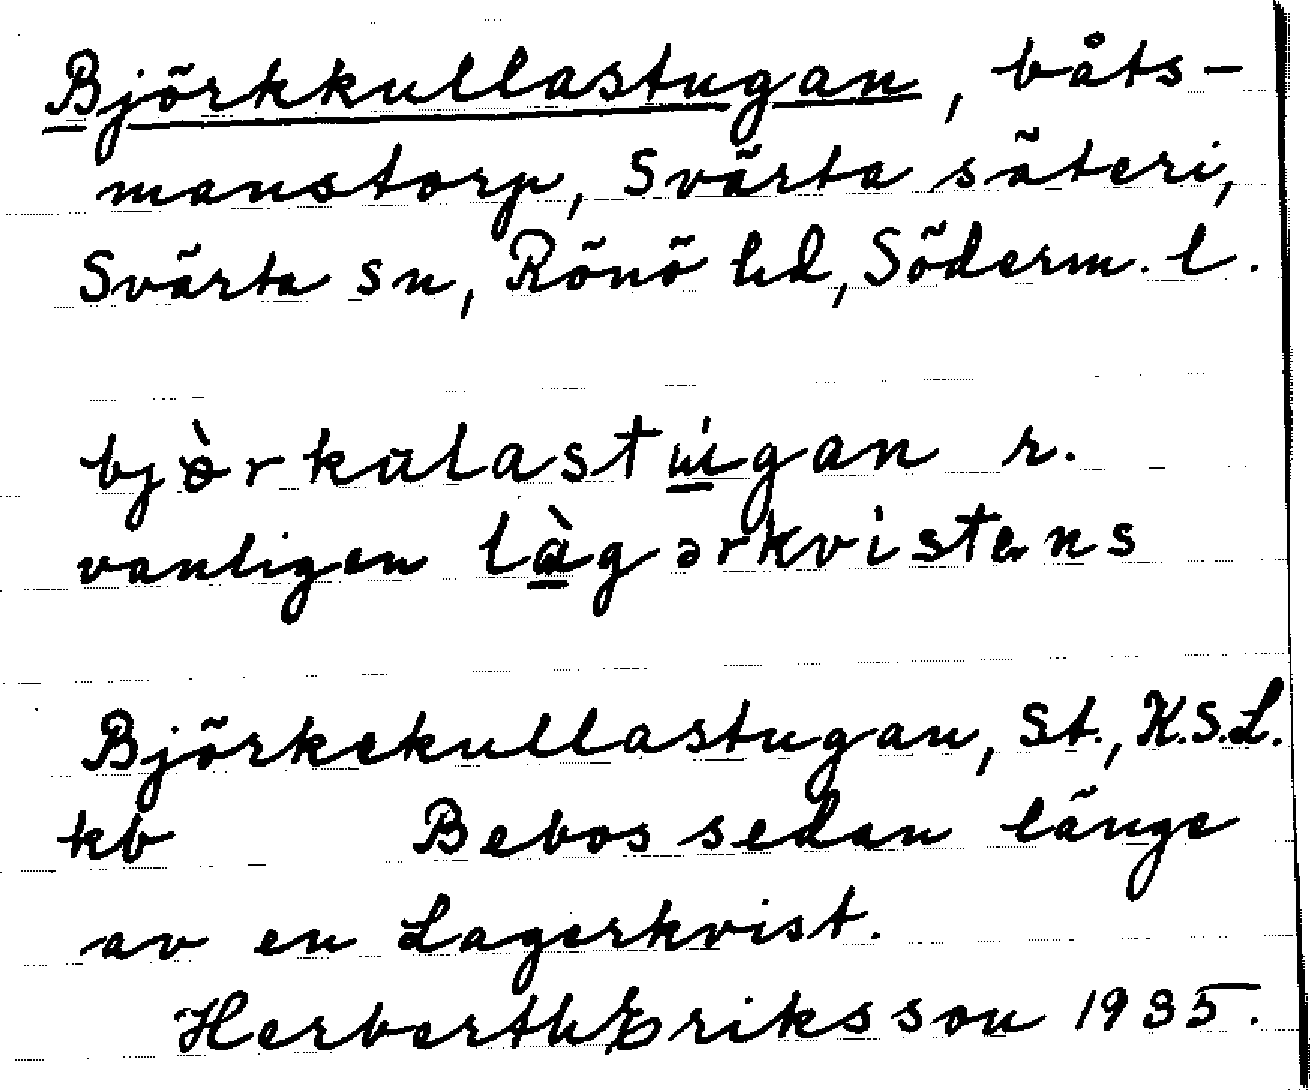 Björkkullastugan, båts-
manstorp, Svärta säteri,
Svärta sn, Rönö hd, Söderm. l.
bjὸrkulastú̲gan r.
vanligen là̲gərkvistens
Björkekullastugan, St., K.S.L.
kb Bebos sedan länge
av en Lagerkvist.
Herberth Eriksson 1935.